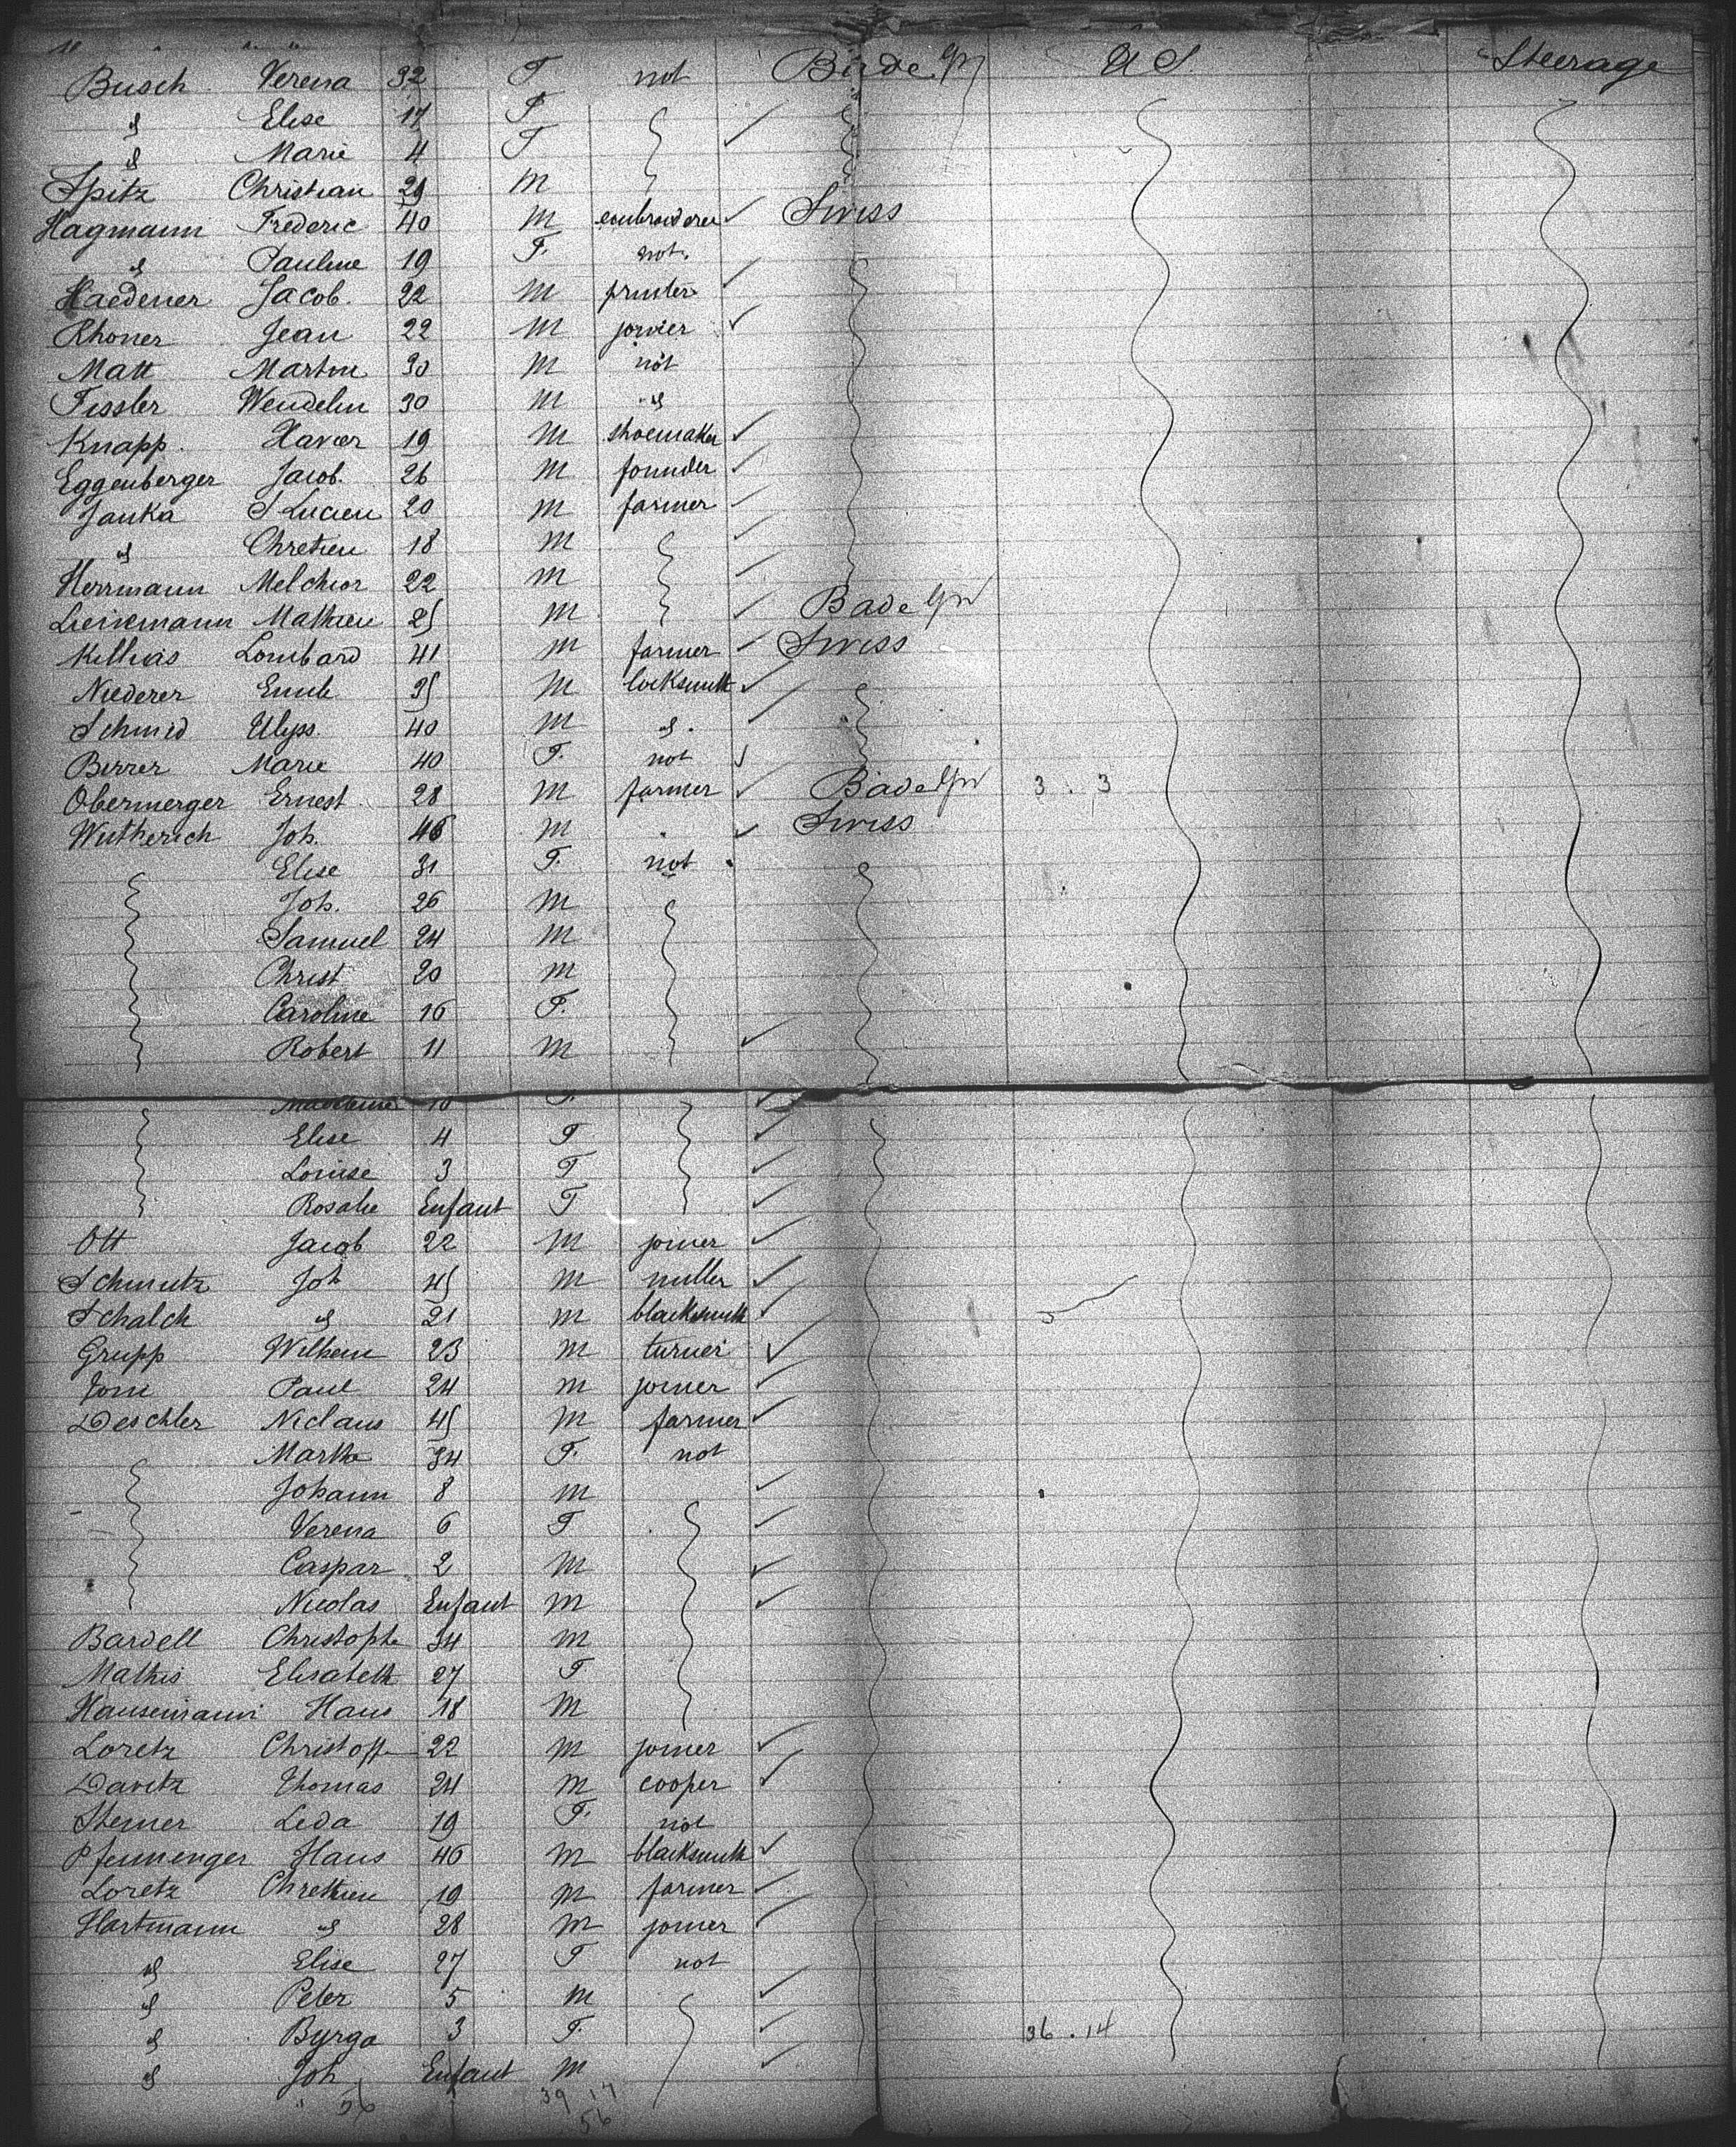 Busch Verena 32 F not Bade Gr U S. Steerage
" Elise 17 F
" Marie 4 F
Spitz Christian 29 M
Hagmann Frederic 40 M embroiderer Swiss
" Pauline 19 F. not.
Haedener Jacob. 22 M printer
Rhoner Jean 22 M jovier
Matt Martin 30 M not
Fissler Wendelin 30 M "
Knapp. Xavier 19 M shoemaker
Eggenberger Jacob. 26 M founder
Janka S Lucien 20 M farmer
" Chretien 18 M
Herrmann Melchior 22 M
Mathieu 25 M Bade Gr
Killias Lombard 41 M farmer Swiss
Niederer Emile 35 M locksmith
Schmid Ulyss. 40 M "
Birrer Marie 40 F. not
Obermerger Ernest 28 M farmer Bade Gr 3 . 3
Wutherich Joh. 46 M " Swiss
Elise 31 F. not
Joh. 26 M
Samuel 24 M
Christ 20 M
Caroline 16 F.
Robert 11 M
Madeleine 10 F.
Elise 4 F
Louise 3 F
Rosalie Enfant F
Ott Jacob 22 M joiner
Schmutz Joh 45 M miller
Schalch " 21 M blacksmith
Grupp Wilhem 23 M turner
Joni Paul 24 M joiner
Deschler Niclaus 45 M farmer
Martha 34 F. not
Johann 8 M
Verena 6 F
Caspar 2 M
Nicolas Enfant M
Bardell Christoph 34 M
Mathis Elisabeth 27 F
Hausemann Hans 18 M
Loretz Christoff 22 M joiner
Davitz Thomas 24 M cooper
Steiner Leda 19 F. not
Pfenninger Hans 46 M blacksmith
Loretz Chrethien 19 M farmer
Hartmann " 28 M joiner
" Elise 27 F not
" Peter 5 M
" Byrga 3 F. 36 . 14
" Joh Enfant M
56 39 17
56